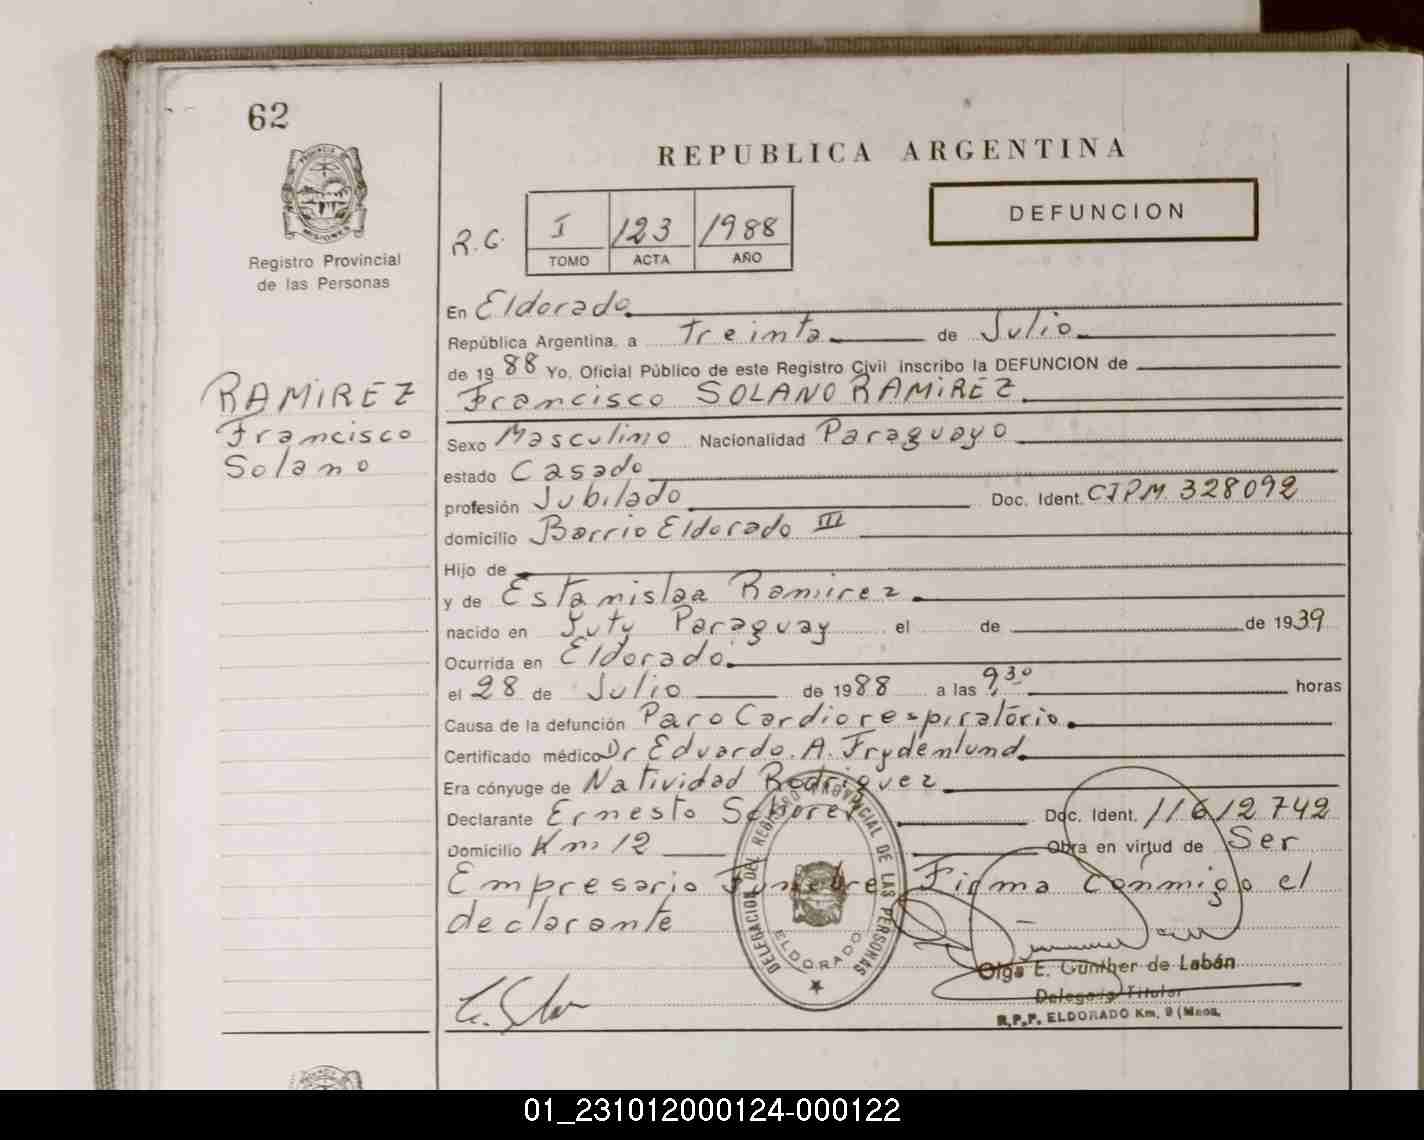 62
PROVINCIA DE
MISIONES
Registro Provincial
de las Personas
RAMIREZ
Francisco
Solano
REPUBLICA ARGENTINA
DEFUNCION
R.C. I 123 1988
TOMO ACTA AÑO
En Eldorado
República Argentina, a treinta de Julio
de 1988 Yo, Oficial Público de este Registro Civil inscribo la DEFUNCION de
Francisco SOLANO RAMIREZ
Sexo Masculino Nacionalidad Paraguayo
estado Casado
profesión Jubilado Doc. Ident. CIPM. 328092
domicilio Barrio Eldorado III
Hijo de
y de Estanislaa Ramirez
nacido en Yuty Paraguay el de de 1939
Ocurrida en Eldorado
el 28 de Julio de 1988 a las 9,30 horas
Causa de la defunción Paro Cardiorespiratório
Certificado médico Dr Eduardo. A. Frydenlund
Era cónyuge de Natividad Rodriguez
Declarante Ernesto Doc. Ident. 11612742
Domicilio Km 12 Obra en virtud de Ser
Empresario Funebre Firma conmigo el
declarante
DELEGACION DEL REGISTRO PROVINCIAL DE LAS PERSONAS
ELDORADO
Olga E. Gunther de Labán
Delegada Titular
R.P.P. ELDORADO Km. 9 (Mnes.
01_231012000124-000122